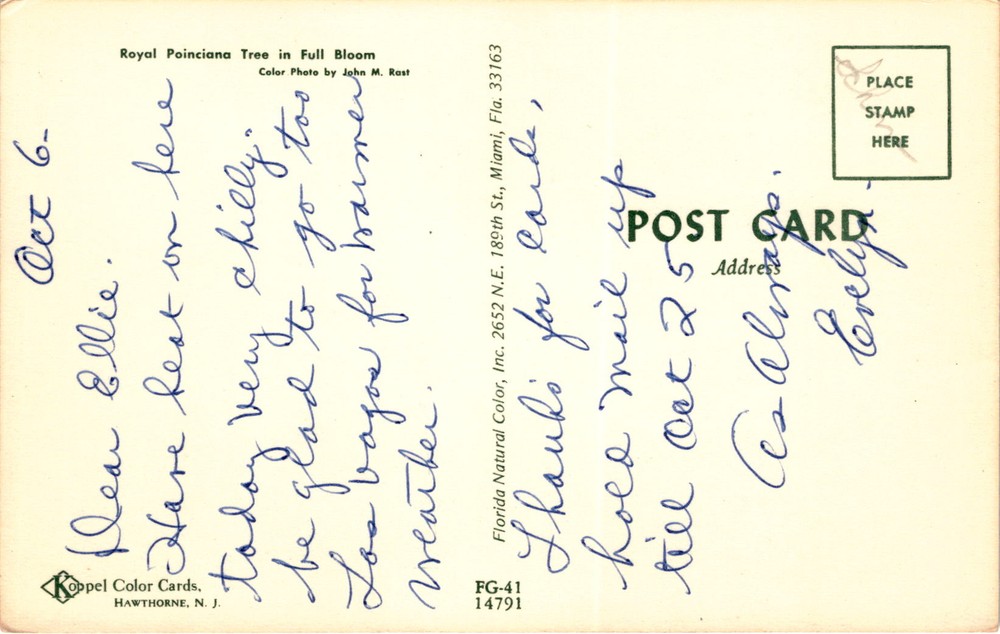 Royal Poinciana Tree in Full Bloom
Color Photo by John M. Rast
Oct 6-
Dear Ellie.
Have heat on here
today very chilly.
be glad to go too
Las Vagas for warmer
weather.
Koppel Color Cards,
HAWTHORNE, N. J.
Florida Natural Color, Inc. 2652 N.E. 189th St., Miami, Fla. 33163
FG-41
14791
Thanks for cards,
hold mail up
till Oct 25
As Always.
Evelyn-
PLACE
STAMP
HERE
POST CARD
Address